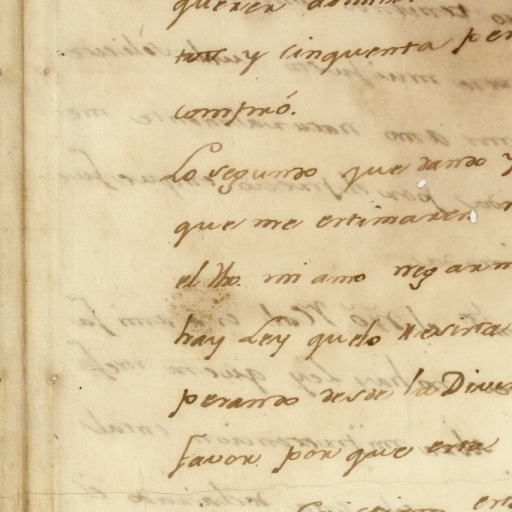 querer
tos y cinquenta pe
compró.
Lo segundo que dando y
que me estimaren
el dho. mi amo negarm
hay Ley que lo
perando desde la Diver
favor. por que esta